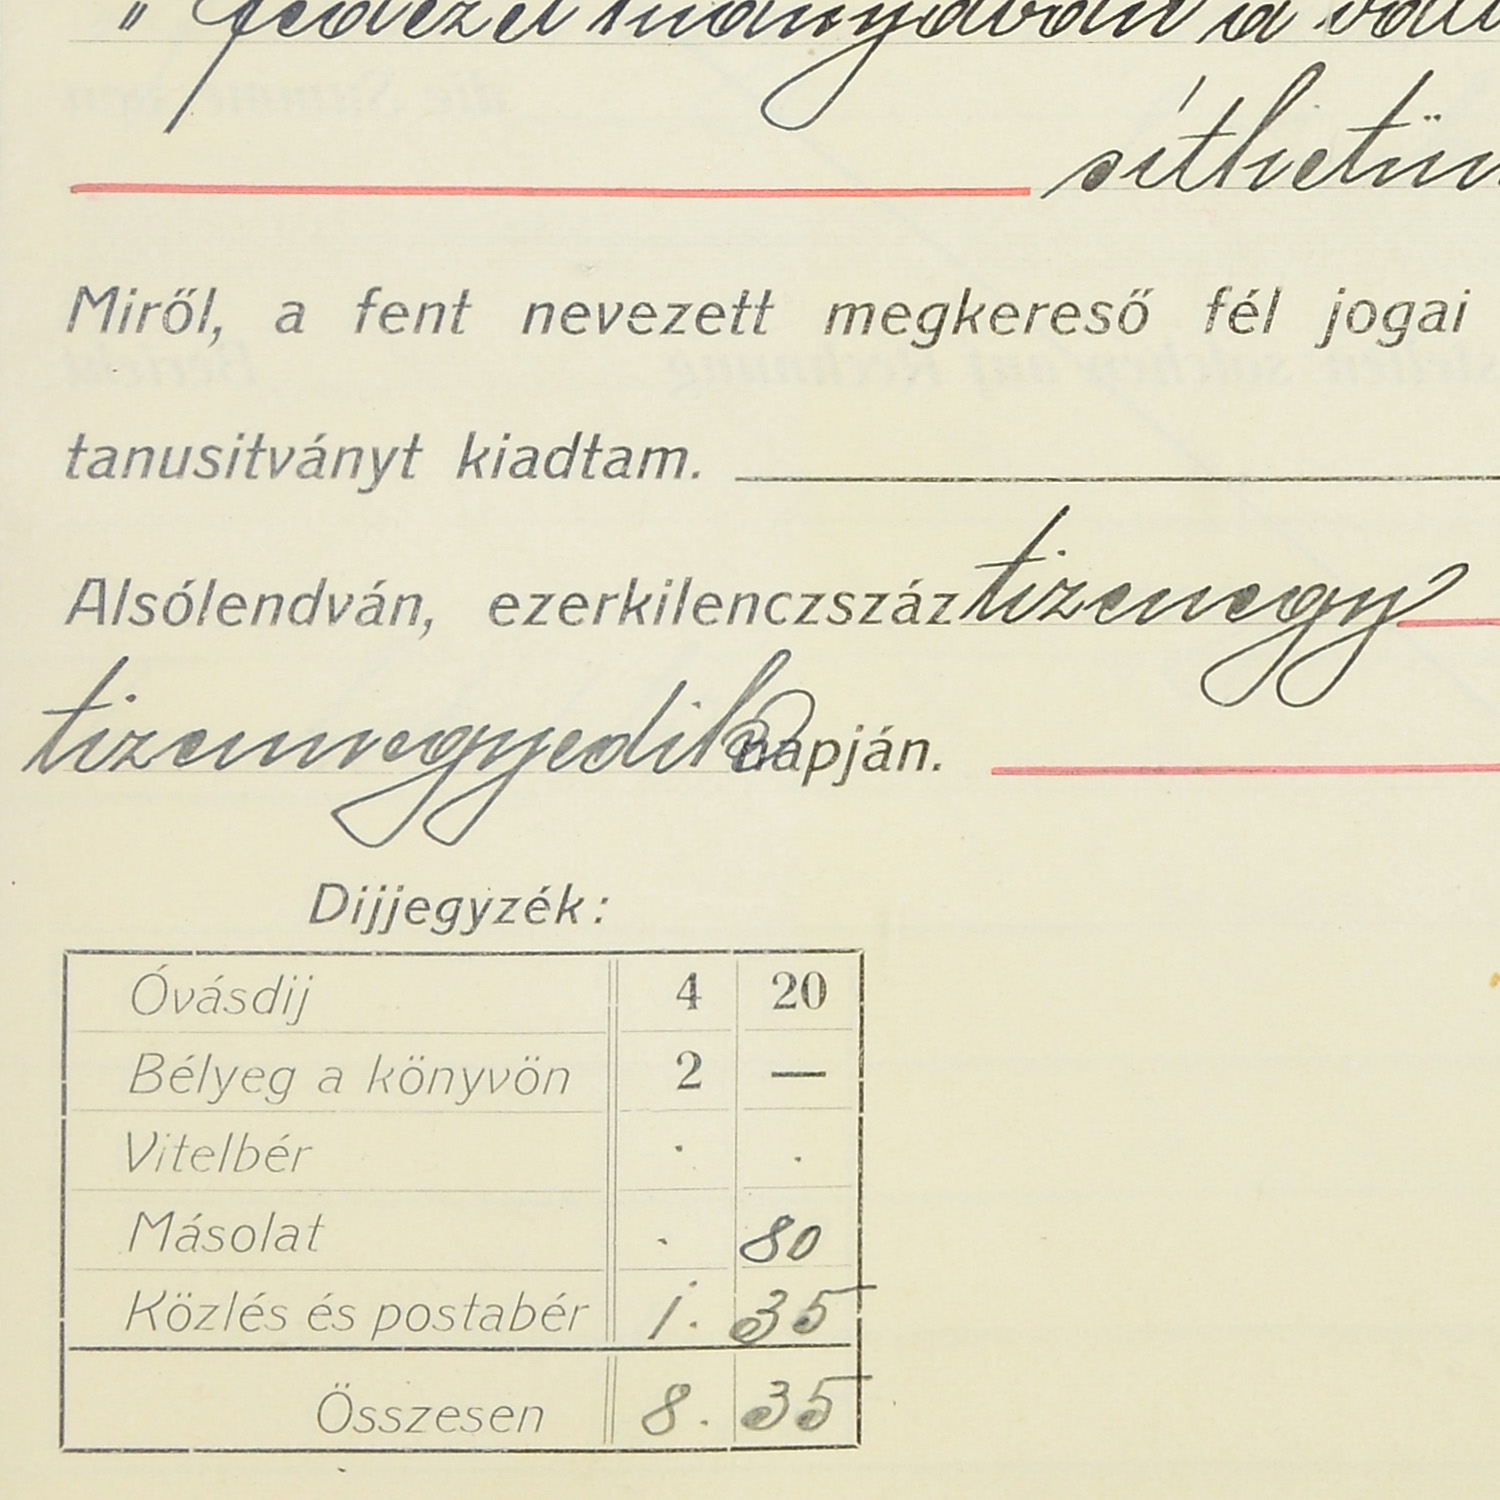 " fedezet hiányában a
síthetün
Miről, a fent nevezett megkereső fél jogai
tanusitványt kiadtam.
Alsólendván, ezerkilenczszáz tizenegy
tizennegyedik napján.
Dijjegyzék:
Óvásdij 4 20
Bélyeg a könyvön 2 —
Vitelbér . .
Másolat . 80
Közlés és postabér 1. 35
Összesen 8. 35